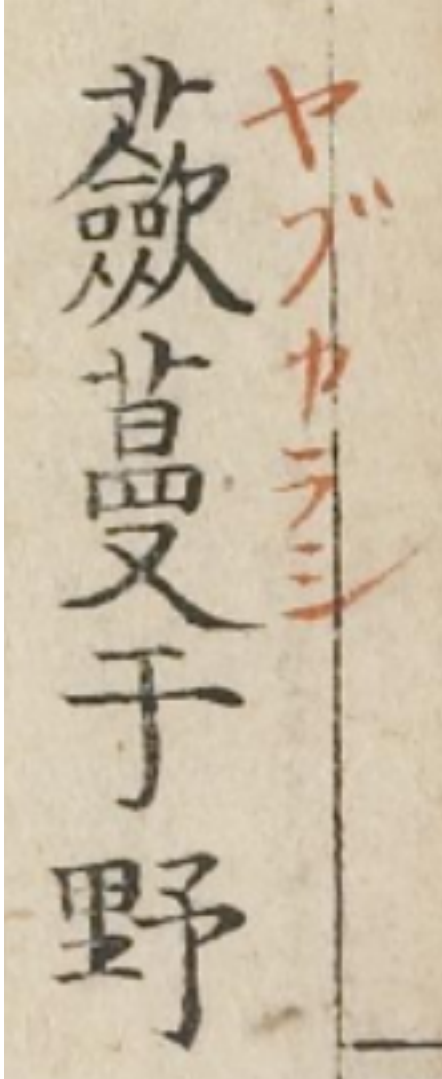 ヤブカラシ
蘝蔓于野